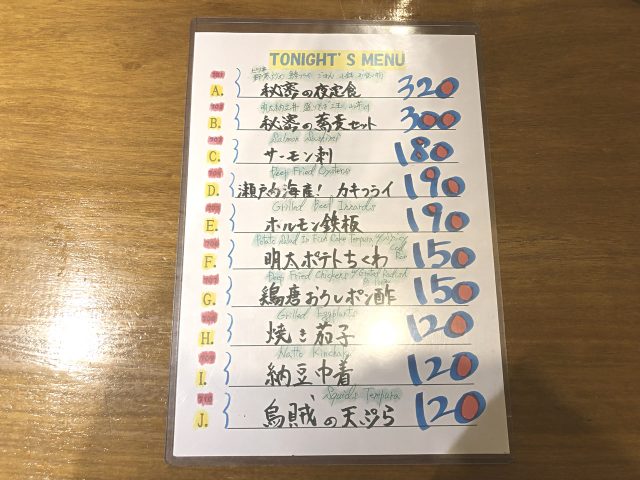 TONIGHT'S MENU
A. 秘密の夜定食 320
明太納豆丼
B. 秘密の蕎麦セット 300
Salmon Sashimi
C. サーモン刺 180
Deep Fried Oysters
D. 瀬戸内海産! カキフライ 190
Grilled Beef Innards
E. ホルモン鉄板 190
Potato Salad In Fish Cake Tempura w/ Spicy Cod Roe
F. 明太ポテトちくわ 150
Deep Fried Chickens w/ Grated Radish
G. 鶏唐おろしポン酢 150
Grilled Eggplants
H. 焼き茄子 120
Natto Kinchaku
I. 納豆巾着 120
Squids Tempura
J. 烏賊の天ぷら 120